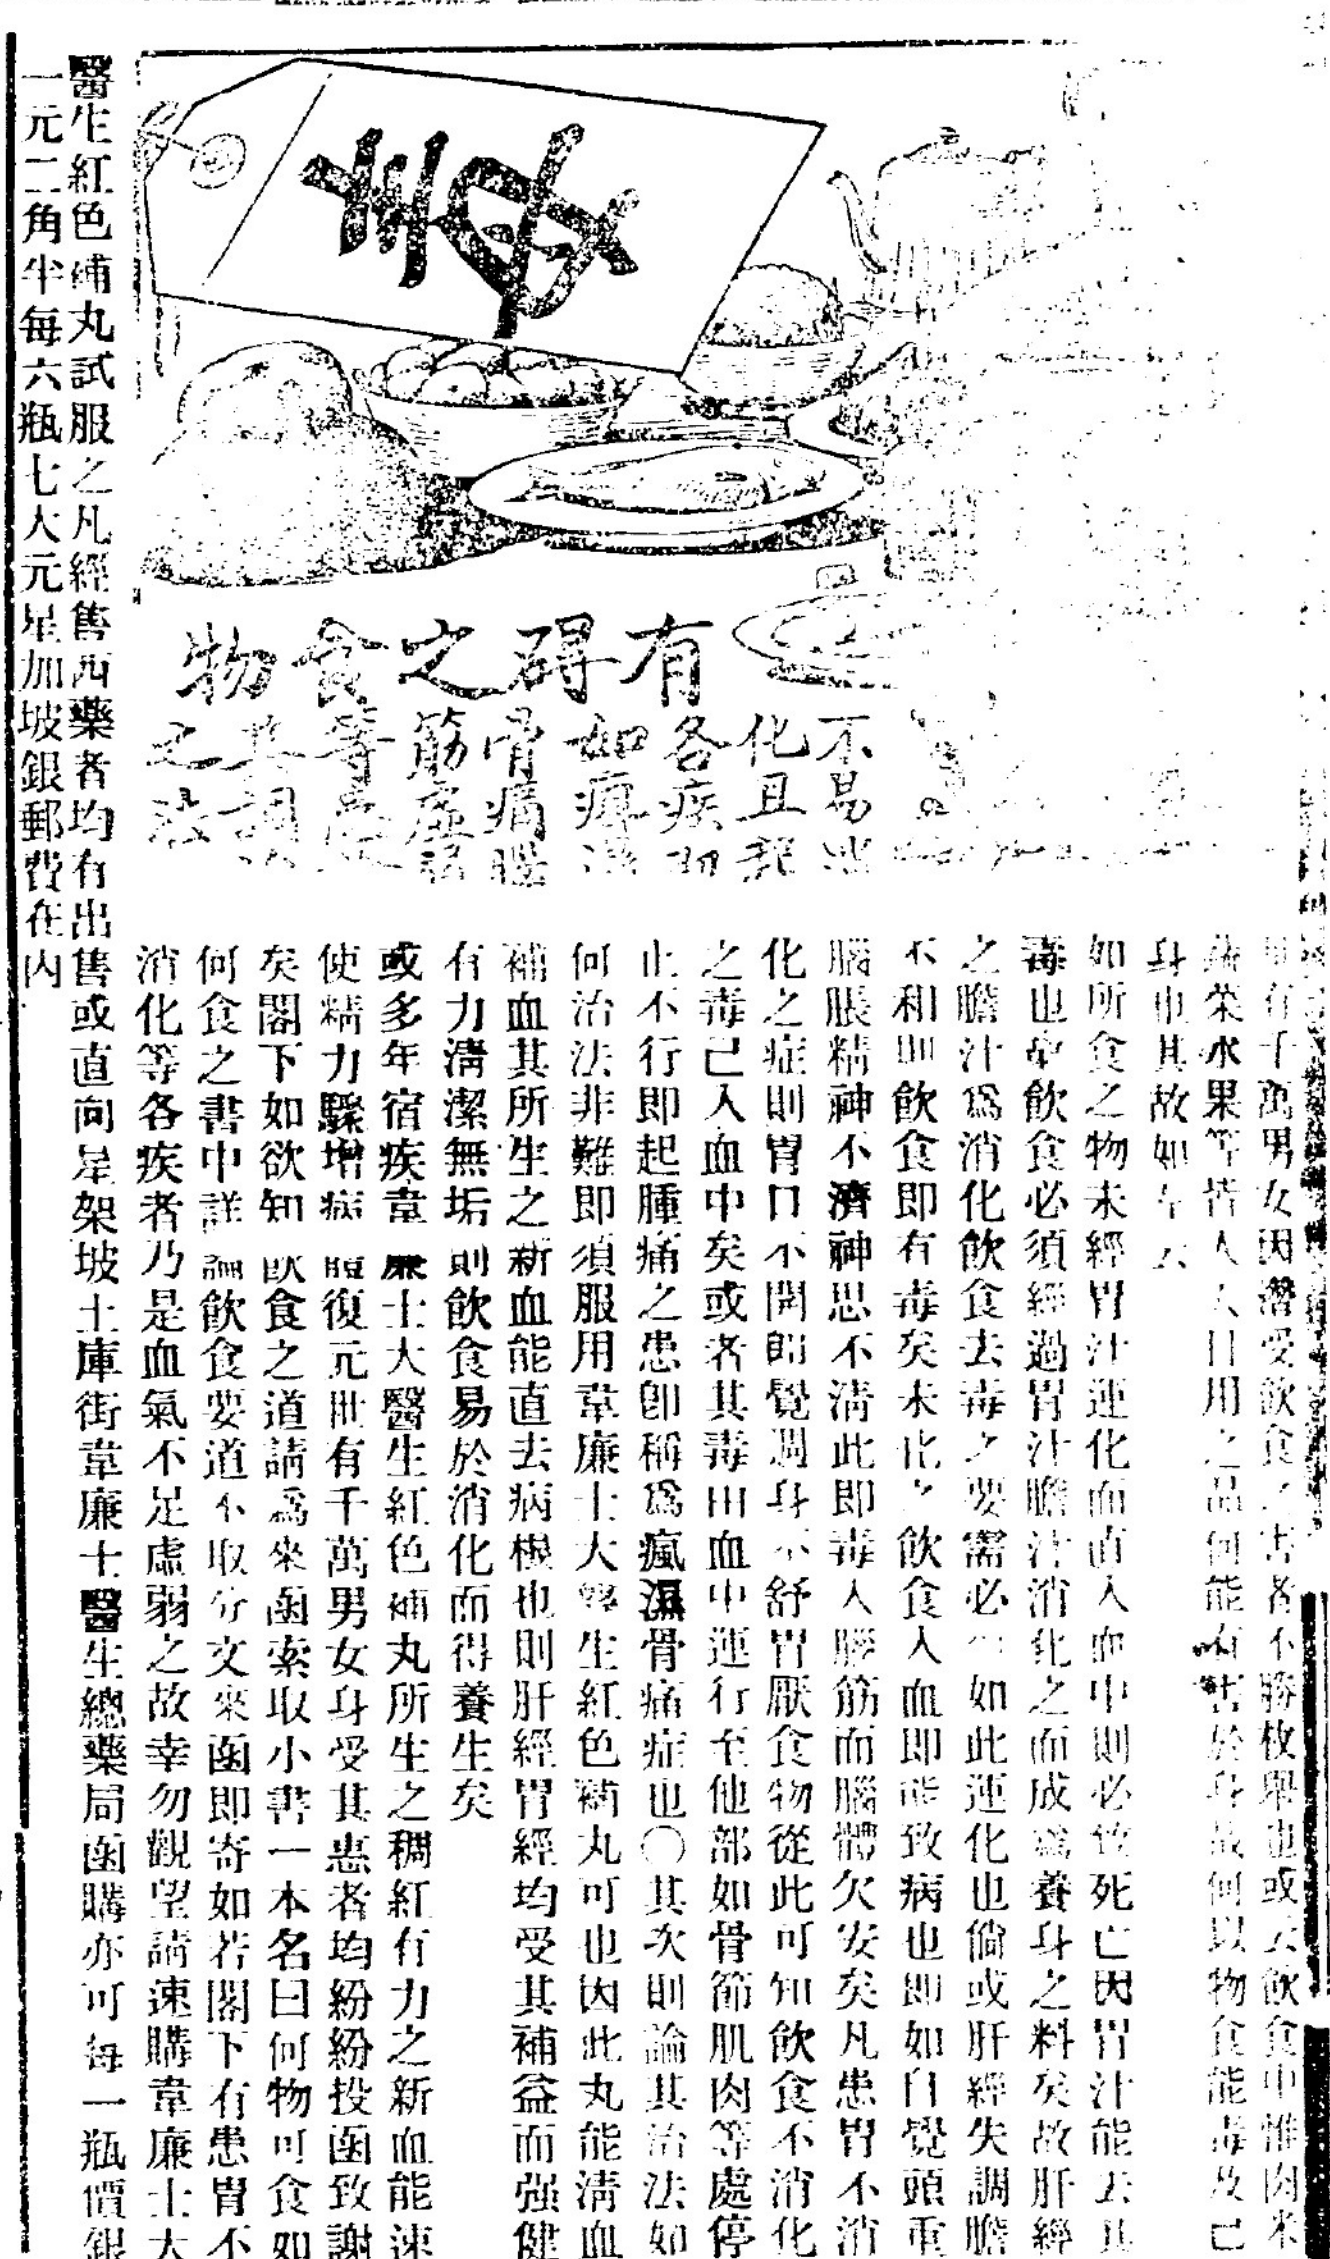 毒
有碍之食物
不易
化且
各疾
如
骨痛腦
筋
等
之
有千萬男女因潛受飲食之害者不勝枚舉也或云飲食中惟肉米
蔬菜水果等皆人人日用之品何能有害於身故何以物食能毒及己
身也其故如左
如所食之物未經胃汁運化而直入血中則必致死亡因胃汁能去其
毒也故飲食必須經過胃汁膽汁消化之而成為養身之料矣故肝經
之膽汁為消化飲食去毒之要需必如此運化也倘或肝經失調膽
不和則飲食即有毒矣未化之飲食入血即能致病也即如自覺頭重
腦脹精神不濟神思不清此即毒入腦筋而腦體欠安矣凡患胃不消
化之症則胃口不開即覺週身不舒胃厭食物從此可知飲食不消化
之毒已入血中矣或者其毒由血中運行至他部如骨節肌肉等處停
止不行即起腫痛之患即稱為瘋濕骨痛症也〇其次則論其治法如
何治法非難即須服用韋廉士大醫生紅色補丸可也因此丸能清血
補血其所生之新血能直去病根也則肝經胃經均受其補益而强健
有力清潔無垢則飲食易於消化而得養生矣
或多年宿疾韋廉士大醫生紅色補丸所生之稠紅有力之新血能速
使精力驟增病體復元世有千萬男女身受其患者均紛紛投函致謝
矣閣下如欲知飲食之道請為來函索取小書一本名曰何物可食如
何食之書中詳論飲食要道不取分文來函即寄如若閣下有患胃不
消化等各疾者乃是血氣不足虛弱之故幸勿觀望請速購韋廉士大
醫生紅色補丸試服之凡經售西藥者均有出售或直向星架坡土庫街韋廉士醫生總藥局函購亦可每一瓶價銀
一元二角半每六瓶七大元星加坡銀郵費在內